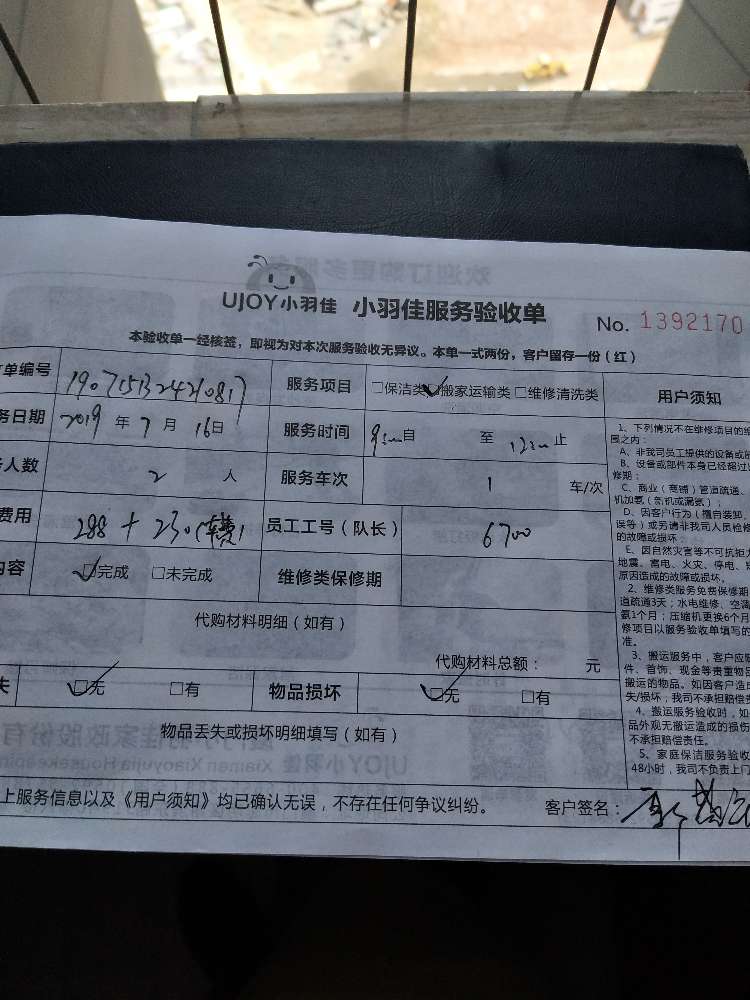 UJOY小羽佳 小羽佳服务验收单 No. 1392170
本验收单一经核签，即视为对本次服务验收无异议。本单一式两份，客户留存一份（红）
单编号 服务项目 □保洁类 □搬家运输类 □维修清洗类 用户须知
务日期 2019 年 7 月 16 日 服务时间 自 至 止
人数 2 人 服务车次 1 车/次
费用 288 + 230 员工工号（队长） 6700
内容 □完成 □未完成 维修类保修期
代购材料明细（如有）
代购材料总额： 元
失 □无 □有 物品损坏 □无 □有
物品丢失或损坏明细填写（如有）
上服务信息以及《用户须知》均已确认无误，不存在任何争议纠纷。 客户签名：
1、下列情况不在维修项目的
围之内：
A、非我司员工提供的设备或
B、设备或部件本身已经超过
修期：
C、商业（商铺）管道疏通、
机加氨（新机或漏氨）；
D、因客户行为（擅自装卸、
误等）或另请非我司人员检修
的故障或损坏；
E、因自然灾害等不可抗拒
地震、雷电、火灾、停电、
原因造成的故障或损坏。
2、维修类服务免费保修期
道疏通3天；水电维修、空调
氨1个月；压缩机更换6个月
修项目以服务验收单填写的
准。
3、搬运服务中，客户应
件、首饰、现金等贵重物品
搬运的物品。如因客户造
失/损坏，我司不承担赔偿责
4、搬运服务验收时，如
品外观无搬运造成的损伤
不承担赔偿责任。
5、家庭保洁服务验收
48小时，我司不负责上门